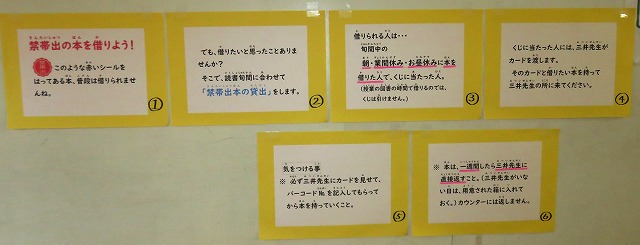 禁帯出の本を借りよう！
このような赤いシールを
はってある本、普段は借りられませ
んね。
①
でも、借りたいと思ったことありま
せんか？
そこで、読書旬間に合わせて
「禁帯出本の貸出」をします。
②
借りられる人は…
旬間中の
朝・業間休み・お昼休みに本を
借りた人で、くじに当たった人。
（授業の図書の時間で借りるのでは、
くじは引けません。）
③
くじに当たった人には、三井先生が
カードを渡します。
そのカードと借りたい本を持って
三井先生の所に来てください。
④
気をつける事
※ 必ず三井先生にカードを見せて、
バーコード№を記入してもらって
から本を持っていくこと。
⑤
※ 本は、一週間したら三井先生に
直接返すこと。（三井先生がいな
い時は、用意された箱に入れて
おく。）カウンターには返しません。
⑥